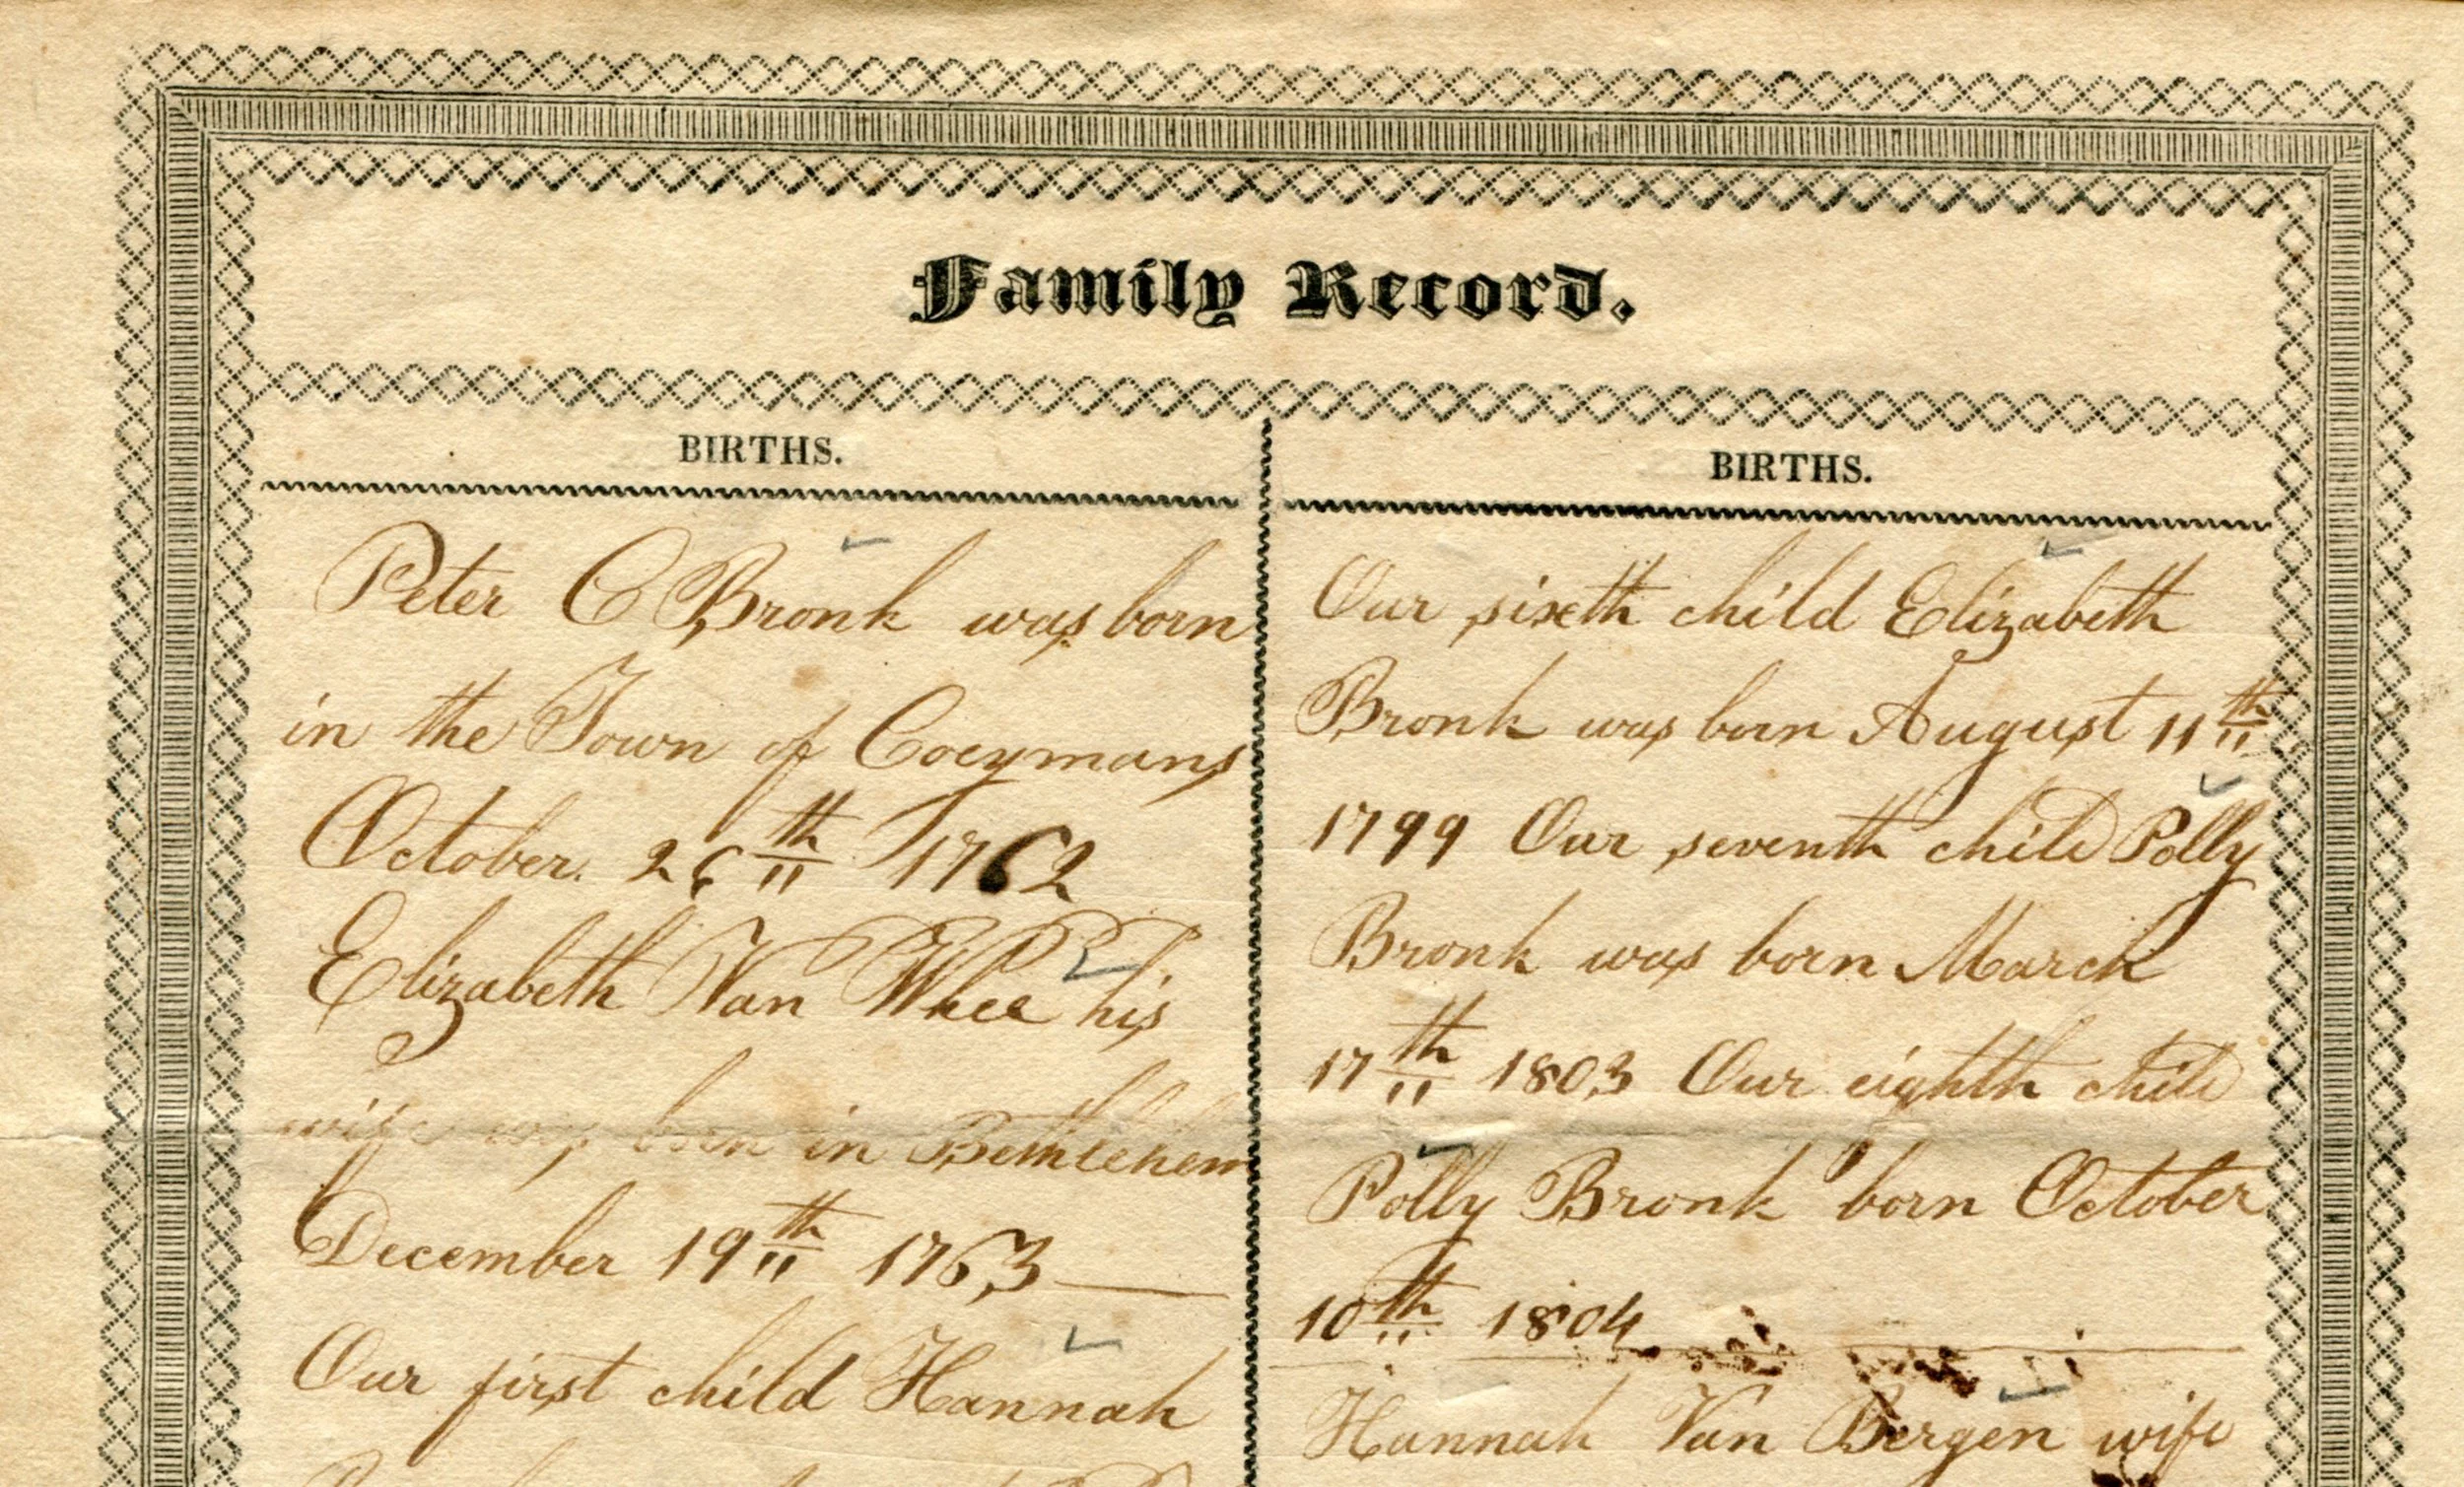 Family Record.
BIRTHS.
Peter C Bronk was born
in the Town of Coeymans
October. 26th 1762
Elizabeth Van Whee his
wife was born in Bethlehem
December 19th 1763
Our first child Hannah
BIRTHS.
Our sixeth child Elizabeth
Bronk was born August 11th
1799 Our seventh child Polly
Bronk was born March
17th 1803 Our eighth child
Polly Bronk born October
10th 1804
Hannah Van Bergen wife